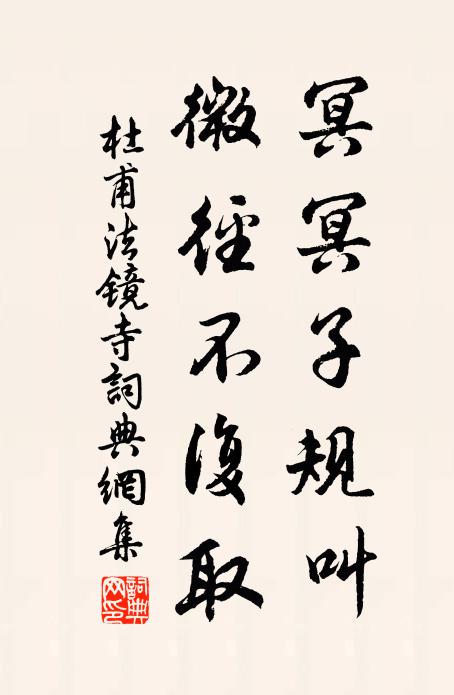 冥冥子規叫
微徑不復取
杜甫法鏡寺詞典網集
詞典网印